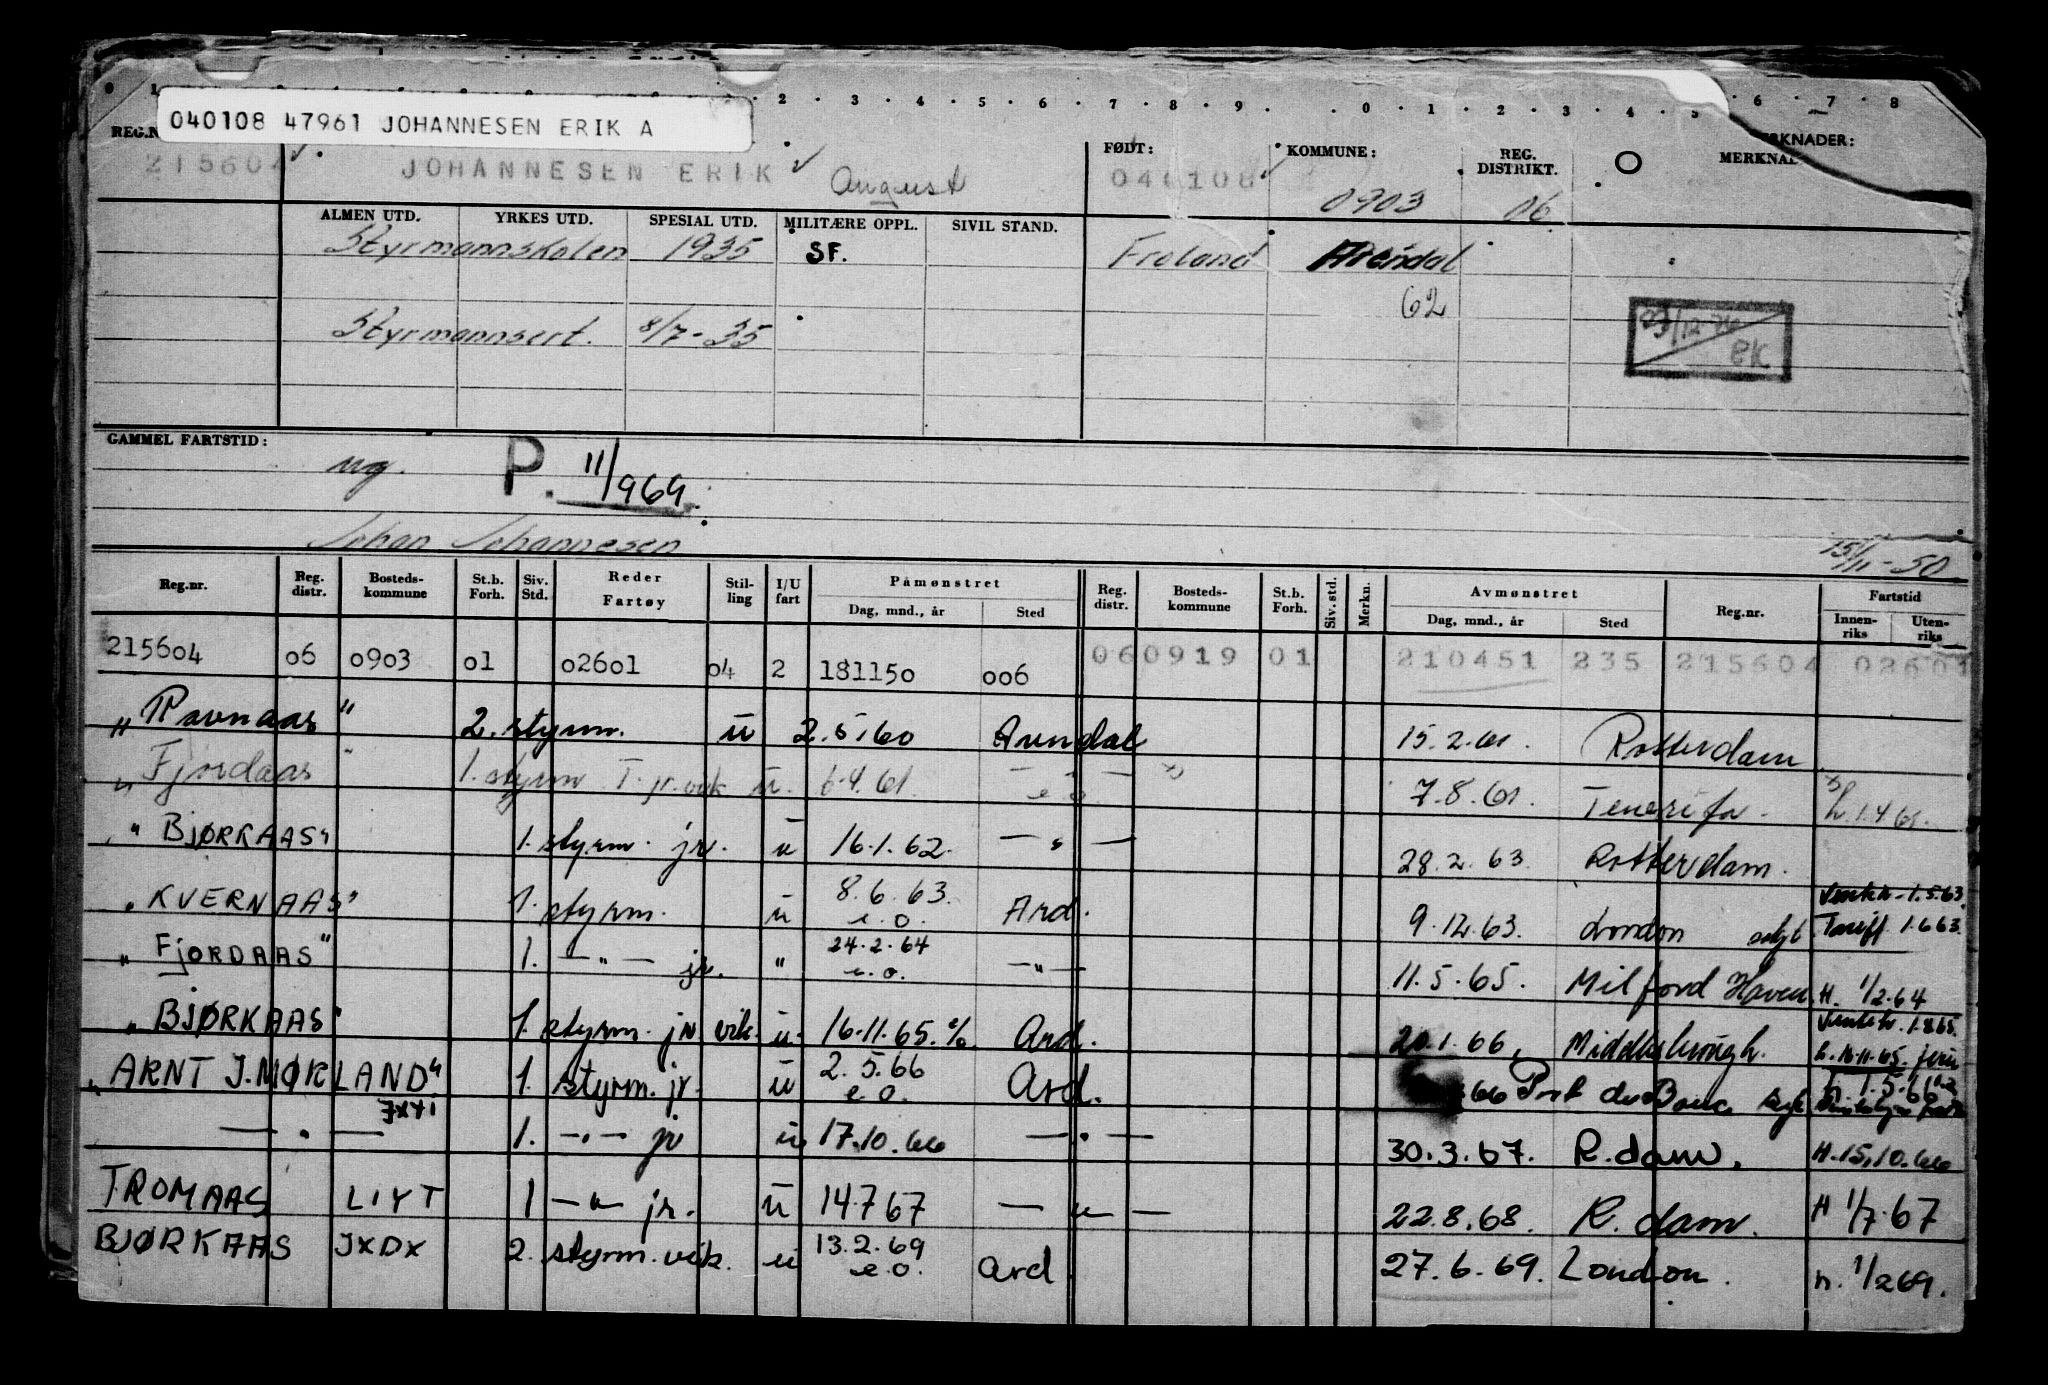 040108 47961 JOHANNESEN ERIK A
REG.N
FØDT: KOMMUNE: REG. DISTRIKT. MERKNADER:
MERKNAD
215604 JOHANNESEN ERIK August 040108 0903 06
ALMEN UTD. YRKES UTD. SPESIAL UTD. MILITÆRE OPPL. SIVIL STAND.
Styrmannskolen 1935 SF. Froland Arendal
62
Styrmannsert. 8/7-35
ek
GAMMEL FARTSTID:
ug. P. 11/969
Johan Johannesen 15/11-50
Reg.nr. Reg. distr. Bosteds-kommune St.b. Forh. Siv. Std. Reder Fartøy Stil-ling I/U fart Påmønstret Dag, mnd., år Sted Reg. distr. Bosteds-kommune St.b. Forh. Siv. std. Merkn. Avmønstret Dag, mnd., år Sted Reg.nr. Fartstid Innen-riks Uten-riks
215604 06 0903 01 02601 04 2 181150 006 060919 01 210451 235 215604 02601
"Ravnaas" 2. styrm. u 2.5.60 Arendal 15.2.61. Rotterdam
"Fjordaas" 1. styrm T. jr. vik u. 6.4.61. — " — e.o. 7.8.61. Tenerifa. h. 1.4.61.
"BJØRKAAS" 1. styrm. jr. u 16.1.62. — " — 28.2.63. Rotterdam.
"KVERNAAS" 1. styrm. u 8.6.63. e.o. Ard. 9.12.63. London solgt Ventek. 1.5.63. Tariff 1.6.63.
"FjORDAAS" 1. — " — jr. " 24.2.64 e.o. — " — 11.5.65. Milford Haven H. 1/2.64
"BJØRKAAS" 1. styrm. jr vik. u. 16.11.65. Ard. 20.1.66, Middlesbrough. h. 16.11.65.
"ARNT J. MØRLAND" 1. styrm. jr. u 2.5.66 e.o. Ard. 66 Port de Bouc
JXYI
— " — 1. — " — jr u 17.10.66 — " — 30.3.67. R.dam. H. 15.10.66
TROMAAS LIYT 1 — " — jr. u 14.7 67 — " — 22.8.68. R.dam. H 1/7.67
BJØRKAAS JXDX 2. styrm. vik. u 13.2.69 e.o. Ard 27.6.69. London. h. 1/2 69.